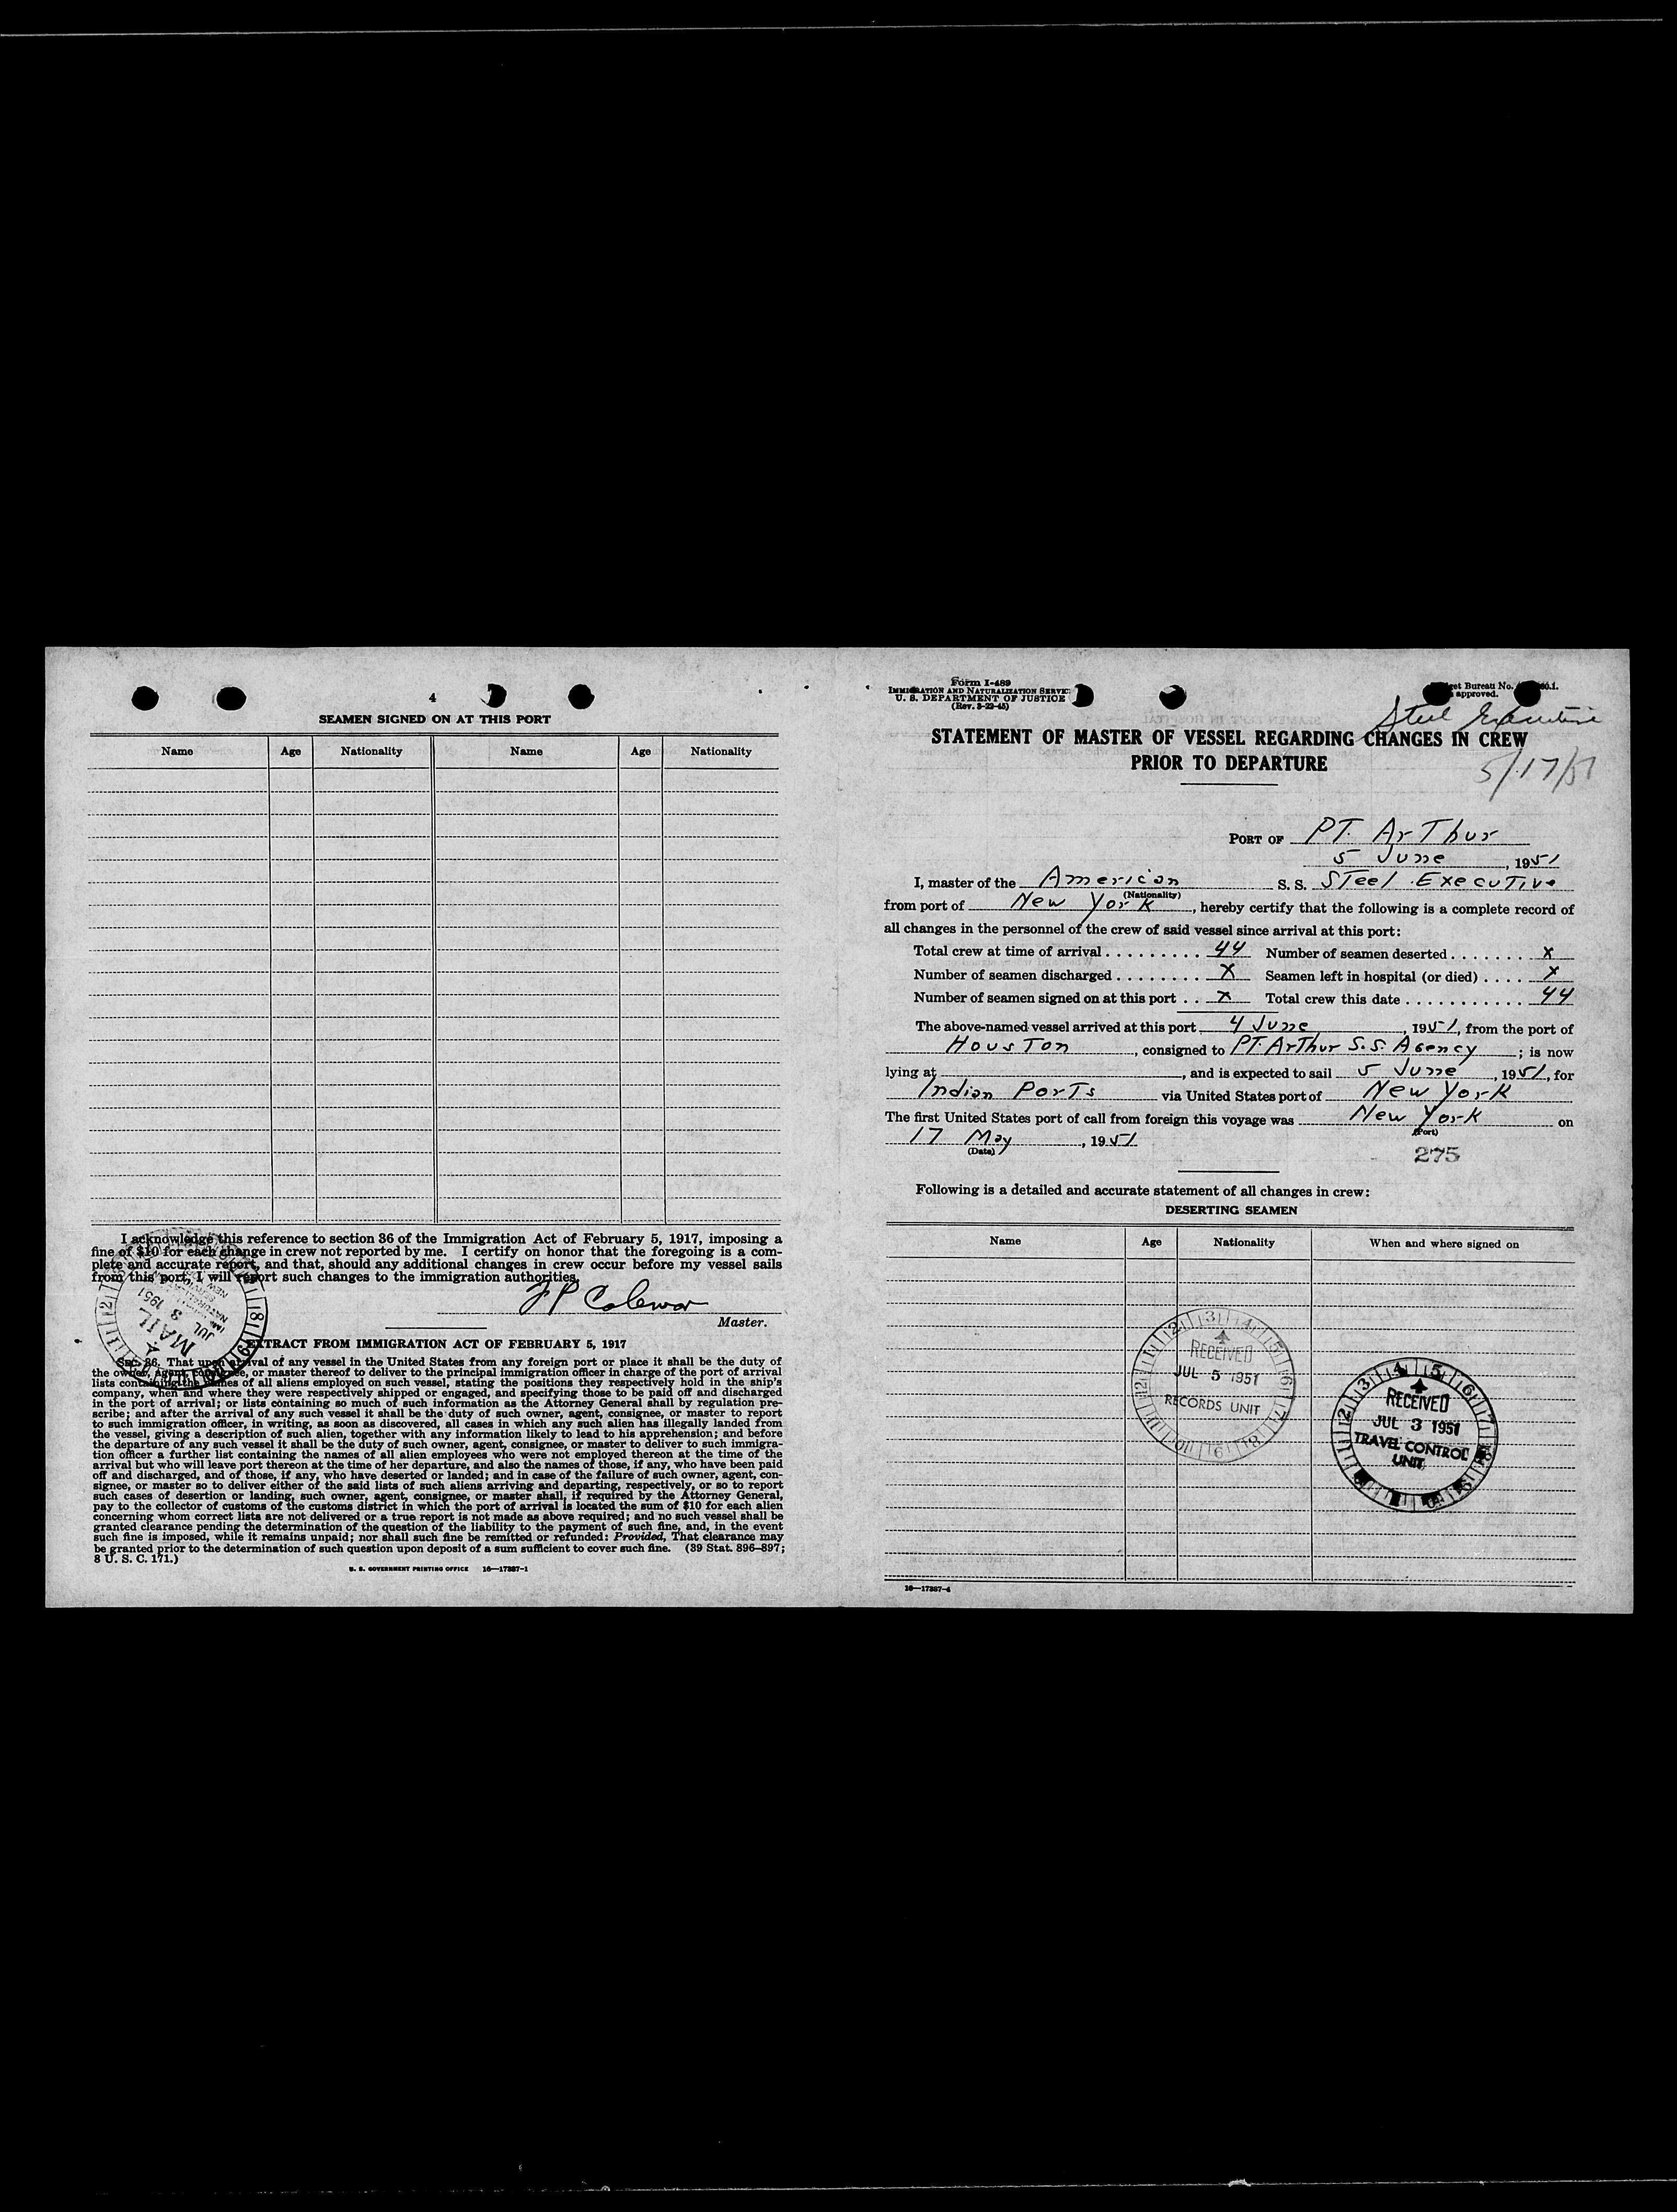 4
SEAMEN SIGNED ON AT THIS PORT
Name Age Nationality Name Age Nationality
I acknowledge this reference to section 36 of the Immigration Act of February 5, 1917, imposing a
fine of $10 for each change in crew not reported by me. I certify on honor that the foregoing is a com-
plete and accurate report, and that, should any additional changes in crew occur before my vessel sails
from this port, I will report such changes to the immigration authorities.
Master.
MAIL
JUL 3 1951
EXTRACT FROM IMMIGRATION ACT OF FEBRUARY 5, 1917
Sec. 36. That upon arrival of any vessel in the United States from any foreign port or place it shall be the duty of
the owner, agent, consignee, or master thereof to deliver to the principal immigration officer in charge of the port of arrival
lists containing the names of all aliens employed on such vessel, stating the positions they respectively hold in the ship's
company, when and where they were respectively shipped or engaged, and specifying those to be paid off and discharged
in the port of arrival; or lists containing so much of such information as the Attorney General shall by regulation pre-
scribe; and after the arrival of any such vessel it shall be the duty of such owner, agent, consignee, or master to report
to such immigration officer, in writing, as soon as discovered, all cases in which any such alien has illegally landed from
the vessel, giving a description of such alien, together with any information likely to lead to his apprehension; and before
the departure of any such vessel it shall be the duty of such owner, agent, consignee, or master to deliver to such immigra-
tion officer a further list containing the names of all alien employees who were not employed thereon at the time of the
arrival but who will leave port thereon at the time of her departure, and also the names of those, if any, who have been paid
off and discharged, and of those, if any, who have deserted or landed; and in case of the failure of such owner, agent, con-
signee, or master so to deliver either of the said lists of such aliens arriving and departing, respectively, or so to report
such cases of desertion or landing, such owner, agent, consignee, or master shall, if required by the Attorney General,
pay to the collector of customs of the customs district in which the port of arrival is located the sum of $10 for each alien
concerning whom correct lists are not delivered or a true report is not made as above required; and no such vessel shall be
granted clearance pending the determination of the question of the liability to the payment of such fine, and, in the event
such fine is imposed, while it remains unpaid; nor shall such fine be remitted or refunded: Provided, That clearance may
be granted prior to the determination of such question upon deposit of a sum sufficient to cover such fine. (39 Stat. 896–897;
8 U. S. C. 171.)
U. S. GOVERNMENT PRINTING OFFICE 16—17387-1
Form I-489
IMMIGRATION AND NATURALIZATION SERVIC
U. S. DEPARTMENT OF JUSTICE
(Rev. 3-22-45)
get Bureau No.
approved.
Steel Executive
STATEMENT OF MASTER OF VESSEL REGARDING CHANGES IN CREW
PRIOR TO DEPARTURE
5/17/51
PORT OF PT. ArThur
5 June, 1951
I, master of the American S. S. STeel ExecuTive
(Nationality)
from port of New York, hereby certify that the following is a complete record of
all changes in the personnel of the crew of said vessel since arrival at this port:
Total crew at time of arrival . . . . . . . . . 44 Number of seamen deserted . . . . . . . . x
Number of seamen discharged . . . . . . . . X Seamen left in hospital (or died) . . . . X
Number of seamen signed on at this port . . X Total crew this date . . . . . . . . . . . 44
The above-named vessel arrived at this port 4 June, 1951, from the port of
HousTon, consigned to PT. ArThur S.S. Agency; is now
lying at , and is expected to sail 5 June, 1951, for
Indian PorTs via United States port of New York
The first United States port of call from foreign this voyage was New York on
(Port)
17 May, 1951
(Date)
275
Following is a detailed and accurate statement of all changes in crew:
DESERTING SEAMEN
Name Age Nationality When and where signed on
RECEIVED
JUL 5 1951
RECORDS UNIT
RECEIVED
JUL 3 1951
TRAVEL CONTROL
UNIT
16—17387-4